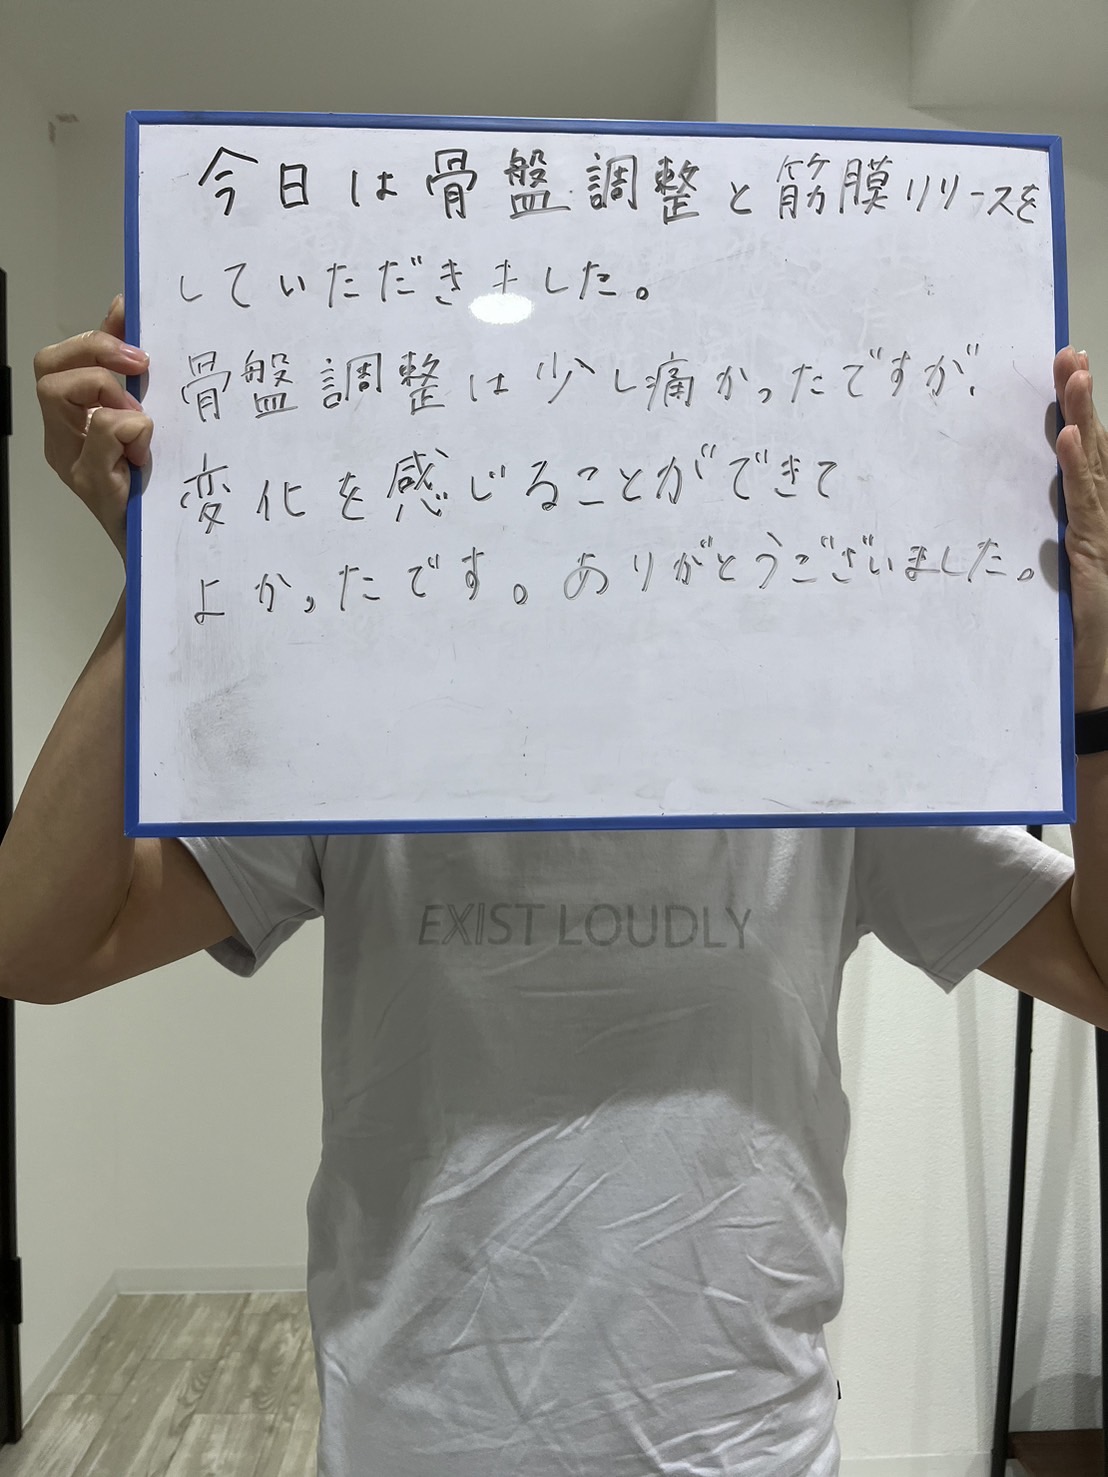 今日は骨盤調整と筋膜リリースを
していただきました。
骨盤調整は少し痛かったですが、
変化を感じることができて
よかったです。ありがとうございました。
EXIST LOUDLY